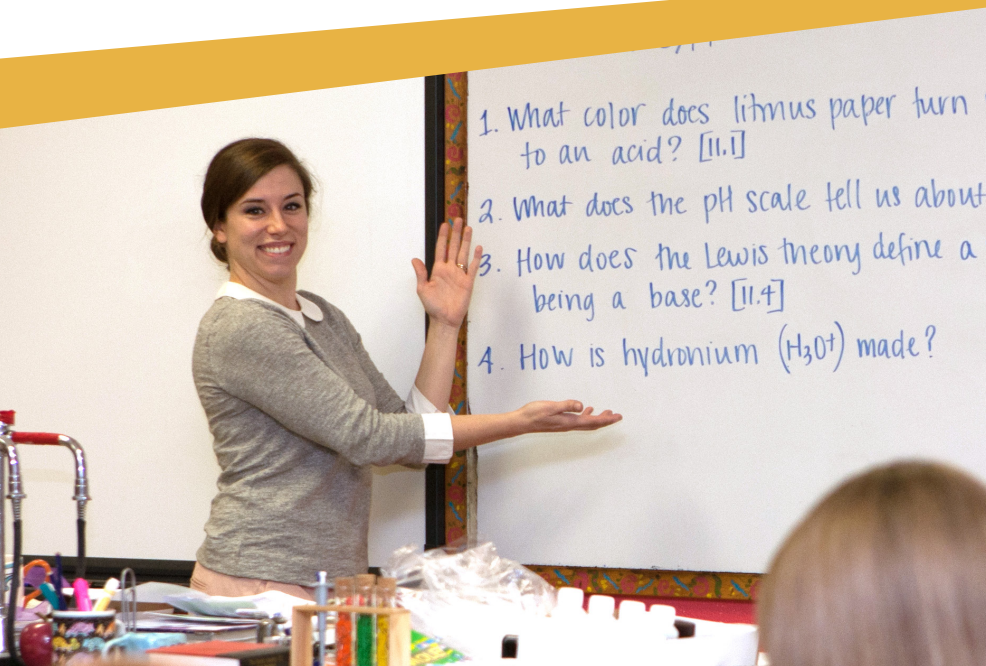 1. What color does litmus paper turn
to an acid? [11.1]
2. What does the pH scale tell us about
3. How does the Lewis theory define a
being a base? [11.4]
4. How is hydronium (H₃O⁺) made?